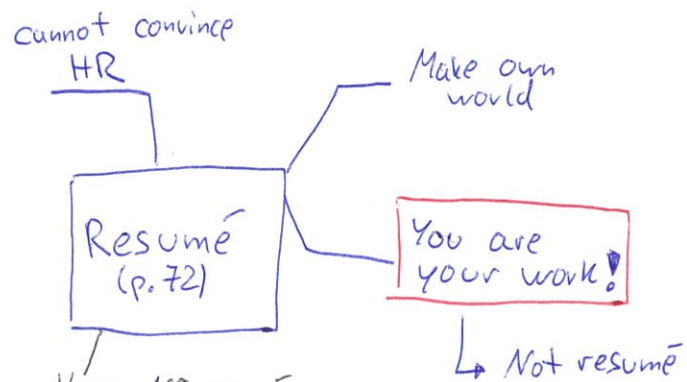 cannot convince
HR
Make own
world
Resumé
(p.72)
You are
your work!
Not resumé